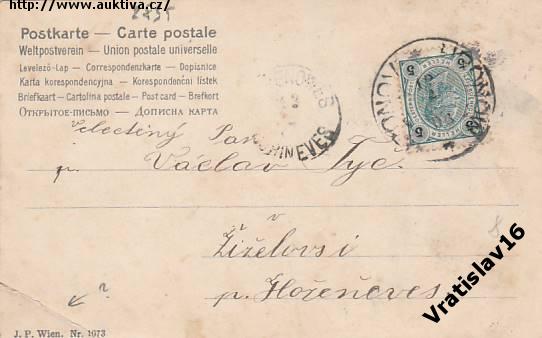 http://www.auktiva.cz/
2855
Postkarte — Carte postale
Weltpostverein — Union postale universelle
Levelező-Lap — Correspondenzkarte — Dopisnice
Karta korespondencyjna — Korespondenční lístek
Briefkart — Cartolina postale — Post card — Brefkort
ОТКРЫТОЕ-ПИСЬМО — ДОПИСНА КАРТА
Velectěný Pan
p. Václav Tyc
v
Žiželovsi
p. Hořeňoves
J. P. Wien. Nr. 1073
Vratislav16